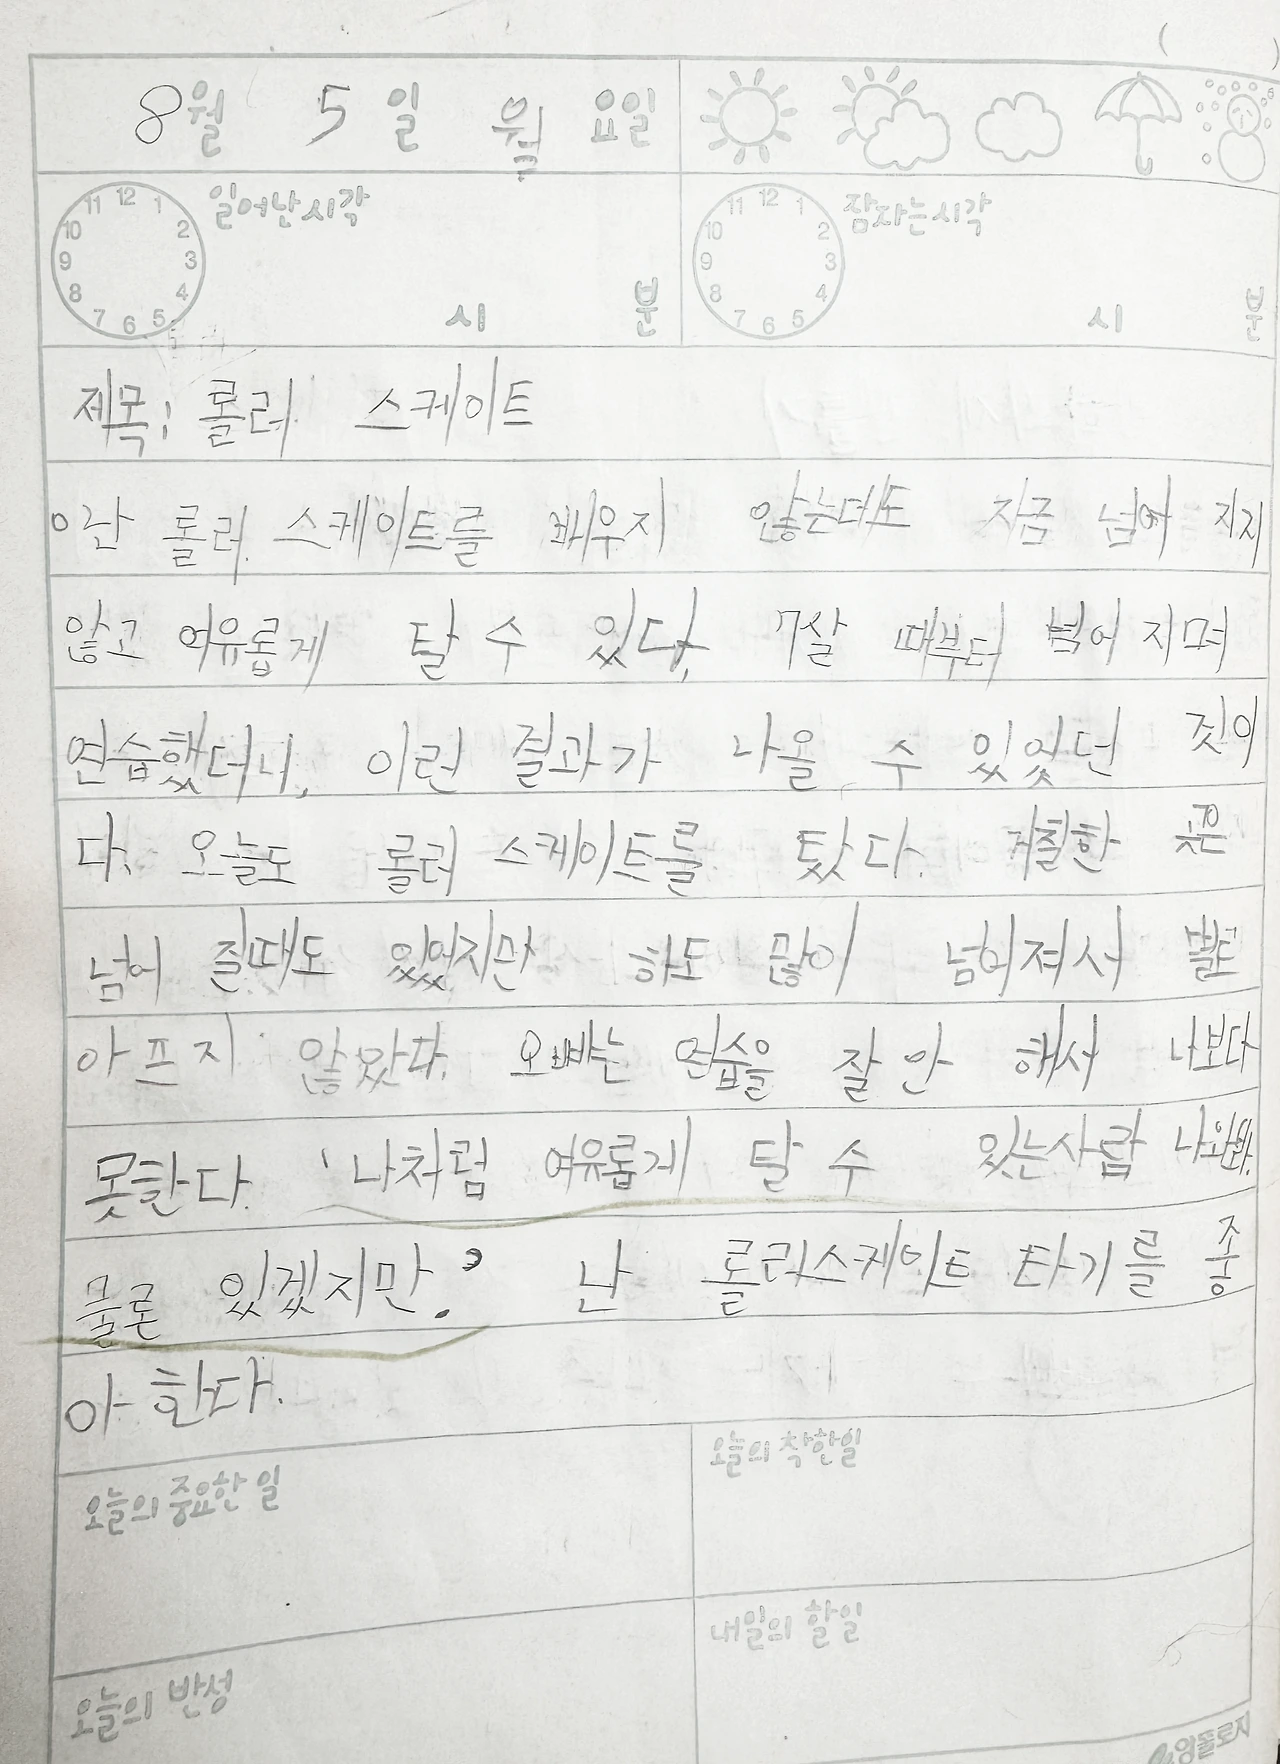 8월 5일 월요일
12 1 2 3 4 5 6 7 8 9 10 11 일어난시각 시 분
12 1 2 3 4 5 6 7 8 9 10 11 잠자는시각 시 분
제목: 롤러 스케이트
이란 롤러 스케이트를 배우지 않는데도 지금 넘어 지지
않고 여유롭게 탈 수 있다. 7살 때부터 넘어 지며
연습했더니, 이런 결과가 나올 수 있었던 것이
다. 오늘도 롤러 스케이트를 탔다. 거칠한 곳은
넘어 질때도 있었지만 하도 많이 넘어져서 별로
아프지 않았다. 오빠는 연습을 잘 안 해서 나보다
못한다. '나처럼 여유롭게 탈 수 있는사람 나와봐.
물론 있겠지만.' 난 롤러스케이트 타기를 좋
아 한다.
오늘의 중요한 일
오늘의 착한일
오늘의 반성
내일의 할일